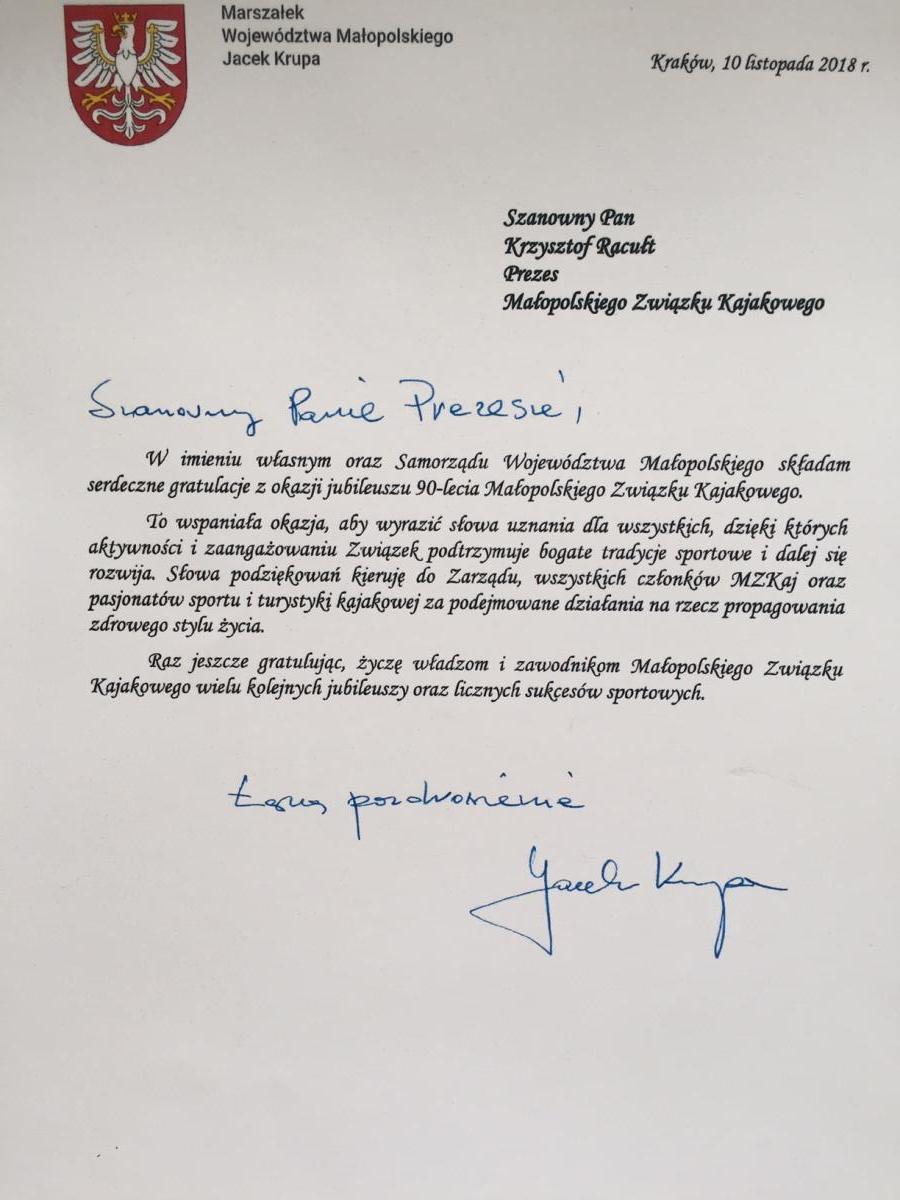 Marszałek
Województwa Małopolskiego
Jacek Krupa
Kraków, 10 listopada 2018 r.
Szanowny Pan
Krzysztof Racułt
Prezes
Małopolskiego Związku Kajakowego
Szanowny Panie Prezesie,
W imieniu własnym oraz Samorządu Województwa Małopolskiego składam
serdeczne gratulacje z okazji jubileuszu 90-lecia Małopolskiego Związku Kajakowego.
To wspaniała okazja, aby wyrazić słowa uznania dla wszystkich, dzięki których
aktywności i zaangażowaniu Związek podtrzymuje bogate tradycje sportowe i dalej się
rozwija. Słowa podziękowań kieruję do Zarządu, wszystkich członków MZKaj oraz
pasjonatów sportu i turystyki kajakowej za podejmowane działania na rzecz propagowania
zdrowego stylu życia.
Raz jeszcze gratulując, życzę władzom i zawodnikom Małopolskiego Związku
Kajakowego wielu kolejnych jubileuszy oraz licznych sukcesów sportowych.
Łączę pozdrowienia
Jacek Krupa